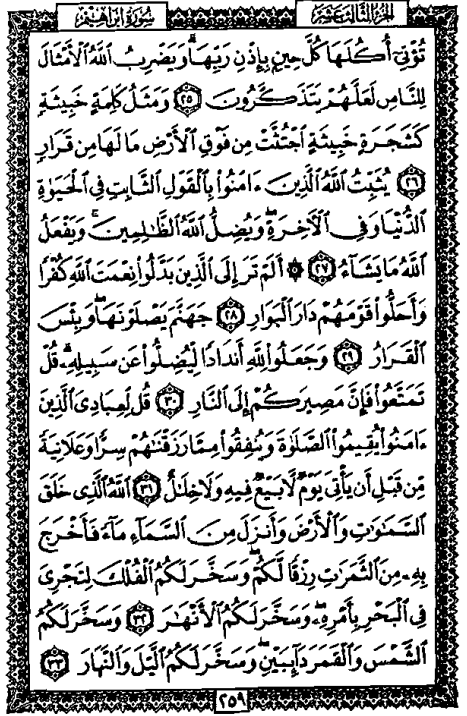 الجزء الثالث عشر
سورة إبراهيم
تُؤْتِىٓ أُكُلَهَا كُلَّ حِينٍۭ بِإِذْنِ رَبِّهَاۗ وَيَضْرِبُ ٱللَّهُ ٱلْأَمْثَالَ
لِلنَّاسِ لَعَلَّهُمْ يَتَذَكَّرُونَ ٢٥ وَمَثَلُ كَلِمَةٍ خَبِيثَةٍ
كَشَجَرَةٍ خَبِيثَةٍ ٱجْتُثَّتْ مِن فَوْقِ ٱلْأَرْضِ مَا لَهَا مِن قَرَارٍ
٢٦ يُثَبِّتُ ٱللَّهُ ٱلَّذِينَ ءَامَنُوا۟ بِٱلْقَوْلِ ٱلثَّابِتِ فِى ٱلْحَيَوٰةِ
ٱلدُّنْيَا وَفِى ٱلْءَاخِرَةِۖ وَيُضِلُّ ٱللَّهُ ٱلظَّٰلِمِينَۚ وَيَفْعَلُ
ٱللَّهُ مَا يَشَآءُ ٢٧ ۞ أَلَمْ تَرَ إِلَى ٱلَّذِينَ بَدَّلُوا۟ نِعْمَتَ ٱللَّهِ كُفْرًا
وَأَحَلُّوا۟ قَوْمَهُمْ دَارَ ٱلْبَوَارِ ٢٨ جَهَنَّمَ يَصْلَوْنَهَاۖ وَبِئْسَ
ٱلْقَرَارُ ٢٩ وَجَعَلُوا۟ لِلَّهِ أَندَادًا لِّيُضِلُّوا۟ عَن سَبِيلِهِۦۗ قُلْ
تَمَتَّعُوا۟ فَإِنَّ مَصِيرَكُمْ إِلَى ٱلنَّارِ ٣٠ قُل لِّعِبَادِىَ ٱلَّذِينَ
ءَامَنُوا۟ يُقِيمُوا۟ ٱلصَّلَوٰةَ وَيُنفِقُوا۟ مِمَّا رَزَقْنَٰهُمْ سِرًّا وَعَلَانِيَةً
مِّن قَبْلِ أَن يَأْتِىَ يَوْمٌ لَّا بَيْعٌ فِيهِ وَلَا خِلَٰلٌ ٣١ ٱللَّهُ ٱلَّذِى خَلَقَ
ٱلسَّمَٰوَٰتِ وَٱلْأَرْضَ وَأَنزَلَ مِنَ ٱلسَّمَآءِ مَآءً فَأَخْرَجَ
بِهِۦ مِنَ ٱلثَّمَرَٰتِ رِزْقًا لَّكُمْۖ وَسَخَّرَ لَكُمُ ٱلْفُلْكَ لِتَجْرِىَ
فِى ٱلْبَحْرِ بِأَمْرِهِۦۖ وَسَخَّرَ لَكُمُ ٱلْأَنْهَٰرَ ٣٢ وَسَخَّرَ لَكُمُ
ٱلشَّمْسَ وَٱلْقَمَرَ دَآئِبَيْنِۖ وَسَخَّرَ لَكُمُ ٱلَّيْلَ وَٱلنَّهَارَ ٣٣
٢٥٩